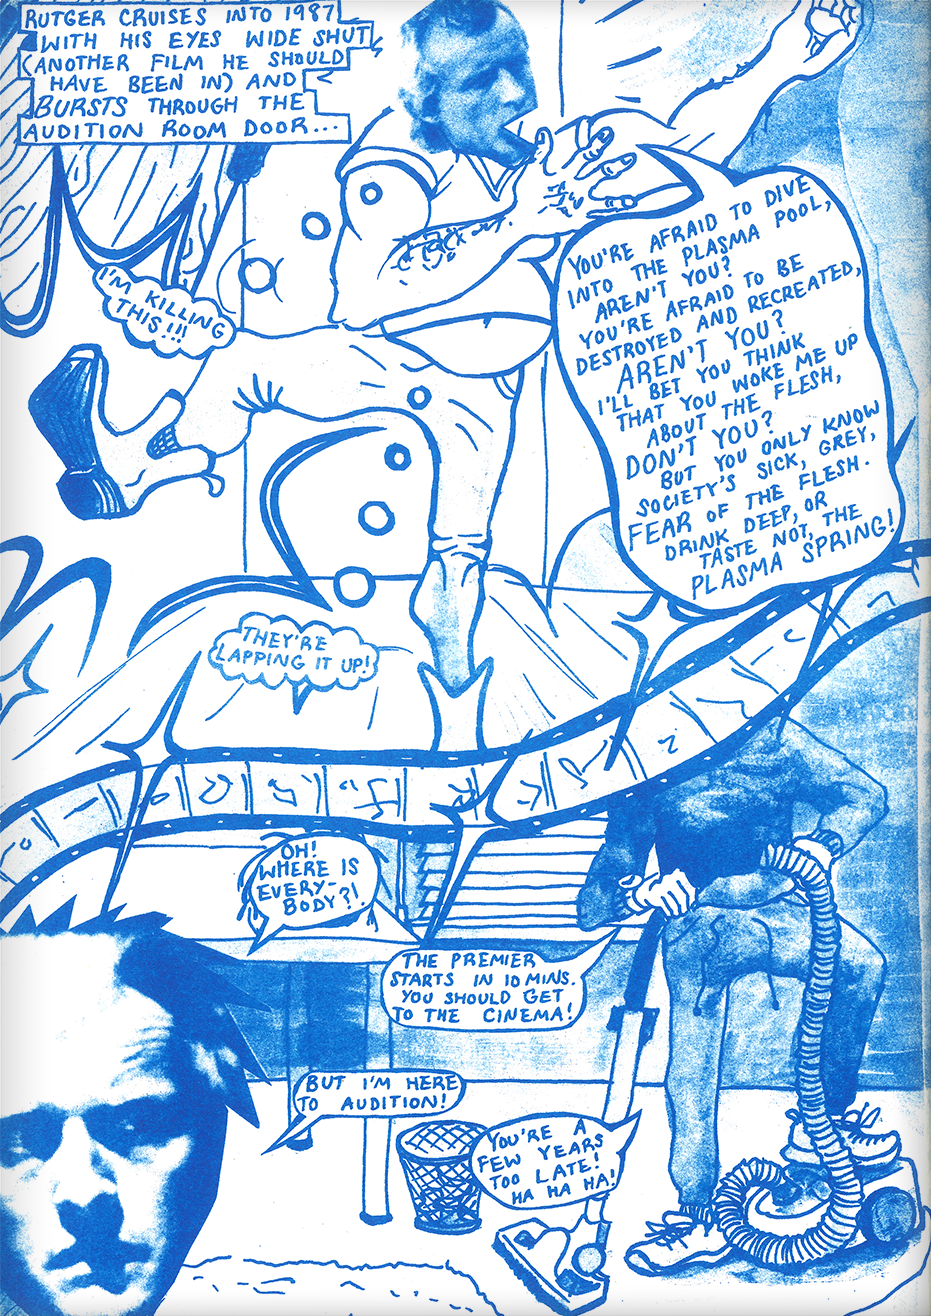 RUTGER CRUISES INTO 1987
WITH HIS EYES WIDE SHUT
(ANOTHER FILM HE SHOULD
HAVE BEEN IN) AND
BURSTS THROUGH THE
AUDITION ROOM DOOR...
YOU'RE AFRAID TO DIVE
INTO THE PLASMA POOL,
AREN'T YOU?
YOU'RE AFRAID TO BE
DESTROYED AND RECREATED,
AREN'T YOU?
I'LL BET YOU THINK
THAT YOU WOKE ME UP
ABOUT THE FLESH,
DON'T YOU?
BUT YOU ONLY KNOW
SOCIETY'S SICK, GREY,
FEAR OF THE FLESH.
DRINK DEEP, OR
TASTE NOT, THE
PLASMA SPRING!
I'M KILLING
THIS!!!
THEY'RE
LAPPING IT UP!
OH!
WHERE IS
EVERY-
BODY?!
THE PREMIER
STARTS IN 10 MINS.
YOU SHOULD GET
TO THE CINEMA!
BUT I'M HERE
TO AUDITION!
YOU'RE A
FEW YEARS
TOO LATE!
HA HA HA!